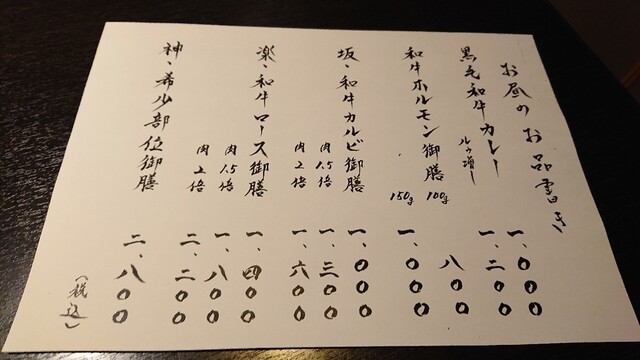 お昼のお品書き
黒毛和牛カレー 一、〇〇〇
ルゥ増し 一、二〇〇
和牛ホルモン御膳 100g 八〇〇
150g 一、〇〇〇
坂、和牛カルビ御膳 一、〇〇〇
肉1.5倍 一、三〇〇
肉2倍 一、六〇〇
楽、和牛ロース御膳 一、四〇〇
肉1.5倍 一、八〇〇
肉2倍 二、二〇〇
神、希少部位御膳 二、八〇〇
(税込)